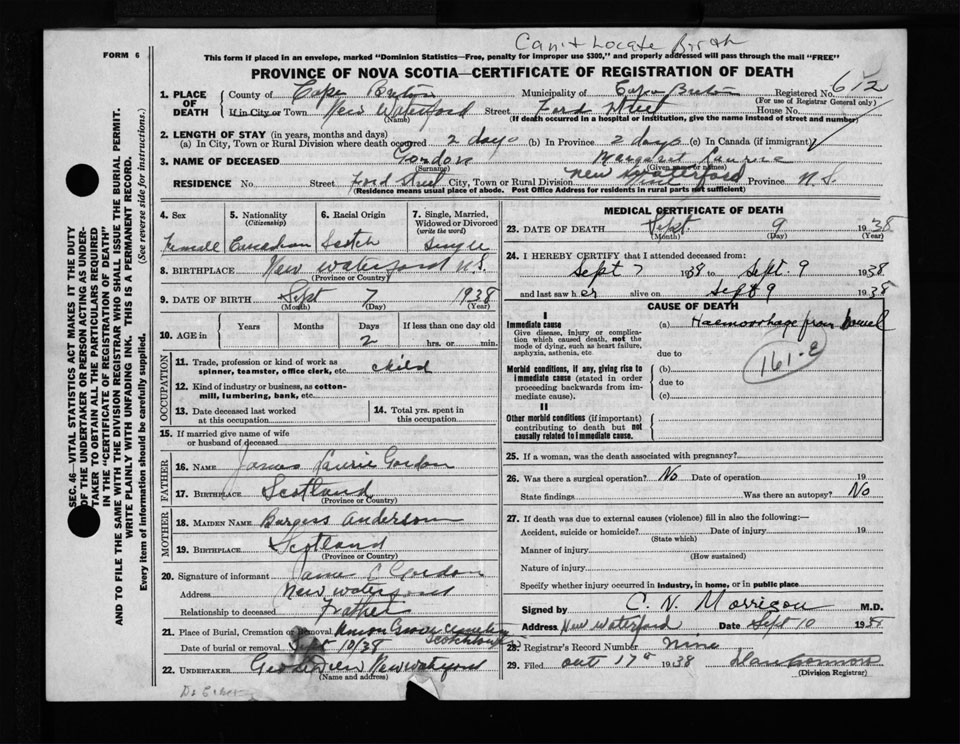 Can't Locate Birth
FORM 6
This form if placed in an envelope, marked "Dominion Statistics—Free, penalty for improper use $300," and properly addressed will pass through the mail "FREE"
PROVINCE OF NOVA SCOTIA—CERTIFICATE OF REGISTRATION OF DEATH
1. PLACE OF DEATH County of Cape Breton Municipality of Cape Breton Registered No. 612
(For use of Registrar General only)
If in City or Town New Waterford Street Ford Street House No.
(Name) (If death occurred in a hospital or institution, give the name instead of street and number)
2. LENGTH OF STAY (in years, months and days)
(a) In City, Town or Rural Division where death occurred 2 days (b) In Province 2 days (c) In Canada (if immigrant)
3. NAME OF DECEASED Gordon Margaret Laurie
(Surname) (Given name or names)
RESIDENCE No. Street Ford Street City, Town or Rural Division New Waterford Province N.S.
(Residence means usual place of abode. Post Office Address for residents in rural parts not sufficient)
SEC. 46—VITAL STATISTICS ACT MAKES IT THE DUTY
OF THE UNDERTAKER OR PERSON ACTING AS UNDER-
TAKER TO OBTAIN ALL THE PARTICULARS REQUIRED
IN THE "CERTIFICATE OF REGISTRATION OF DEATH"
AND TO FILE THE SAME WITH THE DIVISION REGISTRAR WHO SHALL ISSUE THE BURIAL PERMIT.
WRITE PLAINLY WITH UNFADING INK. THIS IS A PERMANENT RECORD.
Every item of information should be carefully supplied. (See reverse side for instructions.)
4. Sex 5. Nationality 6. Racial Origin 7. Single, Married,
(Citizenship) Widowed or Divorced
(write the word)
Female Canadian Scotch Single
8. BIRTHPLACE New Waterford N.S.
(Province or Country)
9. DATE OF BIRTH Sept 7 1938
(Month) (Day) (Year)
10. AGE in Years Months Days If less than one day old
2 hrs. or min.
OCCUPATION
11. Trade, profession or kind of work as
spinner, teamster, office clerk, etc. child
12. Kind of industry or business, as cotton-
mill, lumbering, bank, etc.
13. Date deceased last worked
at this occupation
14. Total yrs. spent in
this occupation
15. If married give name of wife
or husband of deceased
FATHER
16. NAME James Laurie Gordon
17. BIRTHPLACE Scotland
(Province or Country)
MOTHER
18. MAIDEN NAME Burgess Anderson
19. BIRTHPLACE Scotland
(Province or Country)
20. Signature of informant James L Gordon
Address New Waterford
Relationship to deceased Father
21. Place of Burial, Cremation or Removal Union Grove Cemetery
Date of burial or removal Sept 10/38
22. UNDERTAKER New Waterford
(Name and address)
MEDICAL CERTIFICATE OF DEATH
23. DATE OF DEATH Sept. 9 1938
(Month) (Day) (Year)
24. I HEREBY CERTIFY that I attended deceased from:
Sept 7 1938 to Sept. 9 1938
and last saw her alive on Sept 9 1938
CAUSE OF DEATH
I
Immediate cause (a) Haemorrhage from bowel
Give disease, injury or complica-
tion which caused death, not the
mode of dying, such as heart failure,
asphyxia, asthenia, etc due to
161-E
Morbid conditions, if any, giving rise to (b)
immediate cause (stated in order due to
proceeding backwards from im-
mediate cause). (c)
II
Other morbid conditions (if important)
contributing to death but not
causally related to immediate cause.
25. If a woman, was the death associated with pregnancy?
26. Was there a surgical operation? No Date of operation 19
State findings Was there an autopsy? No
27. If death was due to external causes (violence) fill in also the following:—
Accident, suicide or homicide? Date of injury 19
(State which)
Manner of injury
(How sustained)
Nature of injury
Specify whether injury occurred in industry, in home, or in public place
Signed by C. N. Morrison M.D.
Address New Waterford Date Sept 10 1938
28. Registrar's Record Number Nine
29. Filed Oct 17 1938
(Division Registrar)